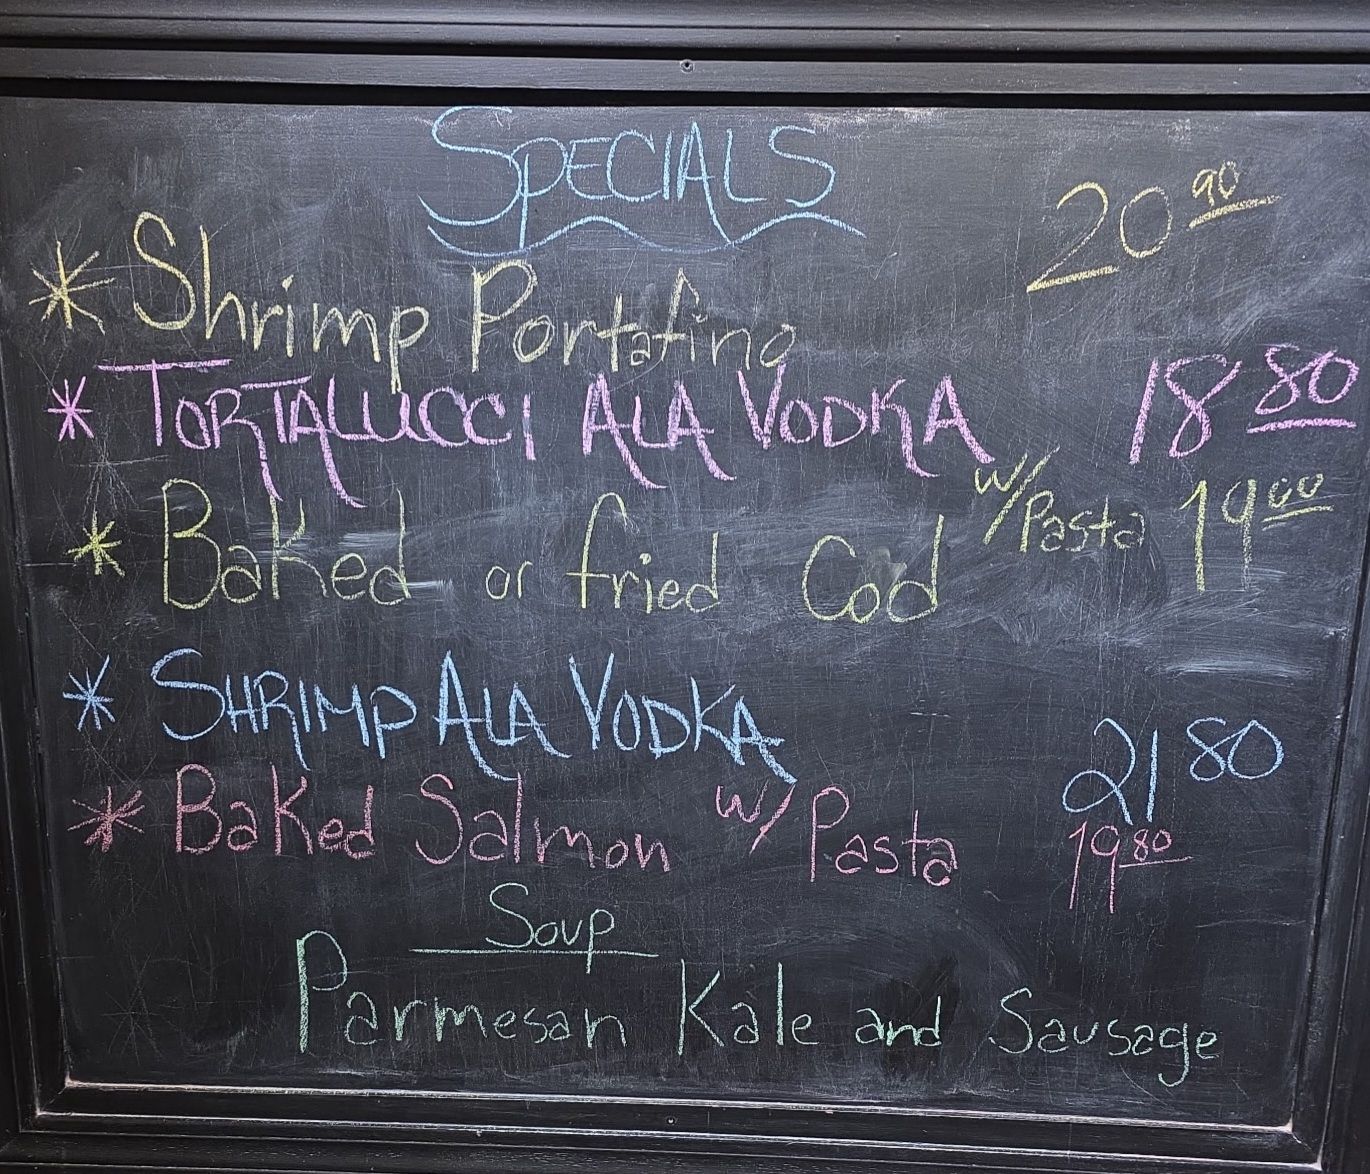 SPECIALS
* Shrimp Portafino 20 90
* TORTALLUCCI ALA VODKA 18 80
* Baked or fried Cod w/Pasta 19 00
* SHRIMP ALA VODKA 21 80
* Baked Salmon w/ Pasta 19 80
Soup
Parmesan Kale and Sausage